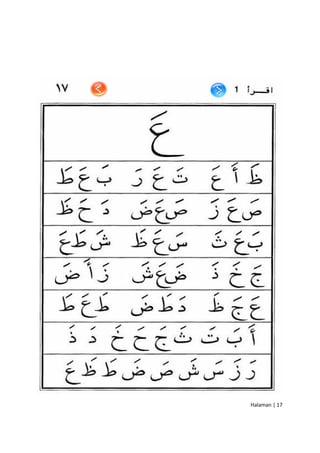 اقــرأ 1 ١٧
عَ
ظَ أَ عَ تَ عَ رَ بَ عَ طَ
صَ عَ زَ صَ عَ ضَ دَ حَ ظَ
بَ عَ ثَ سَ عَ ظَ شَ طَ عَ
جَ خَ ذَ ضَ عَ شَ زَ أَ ضَ
عَ جَ ظَ دَ طَ ضَ طَ عَ طَ
أَ بَ تَ ثَ جَ حَ خَ دَ ذَ
رَ زَ سَ شَ صَ ضَ طَ ظَ عَ
Halaman | 17